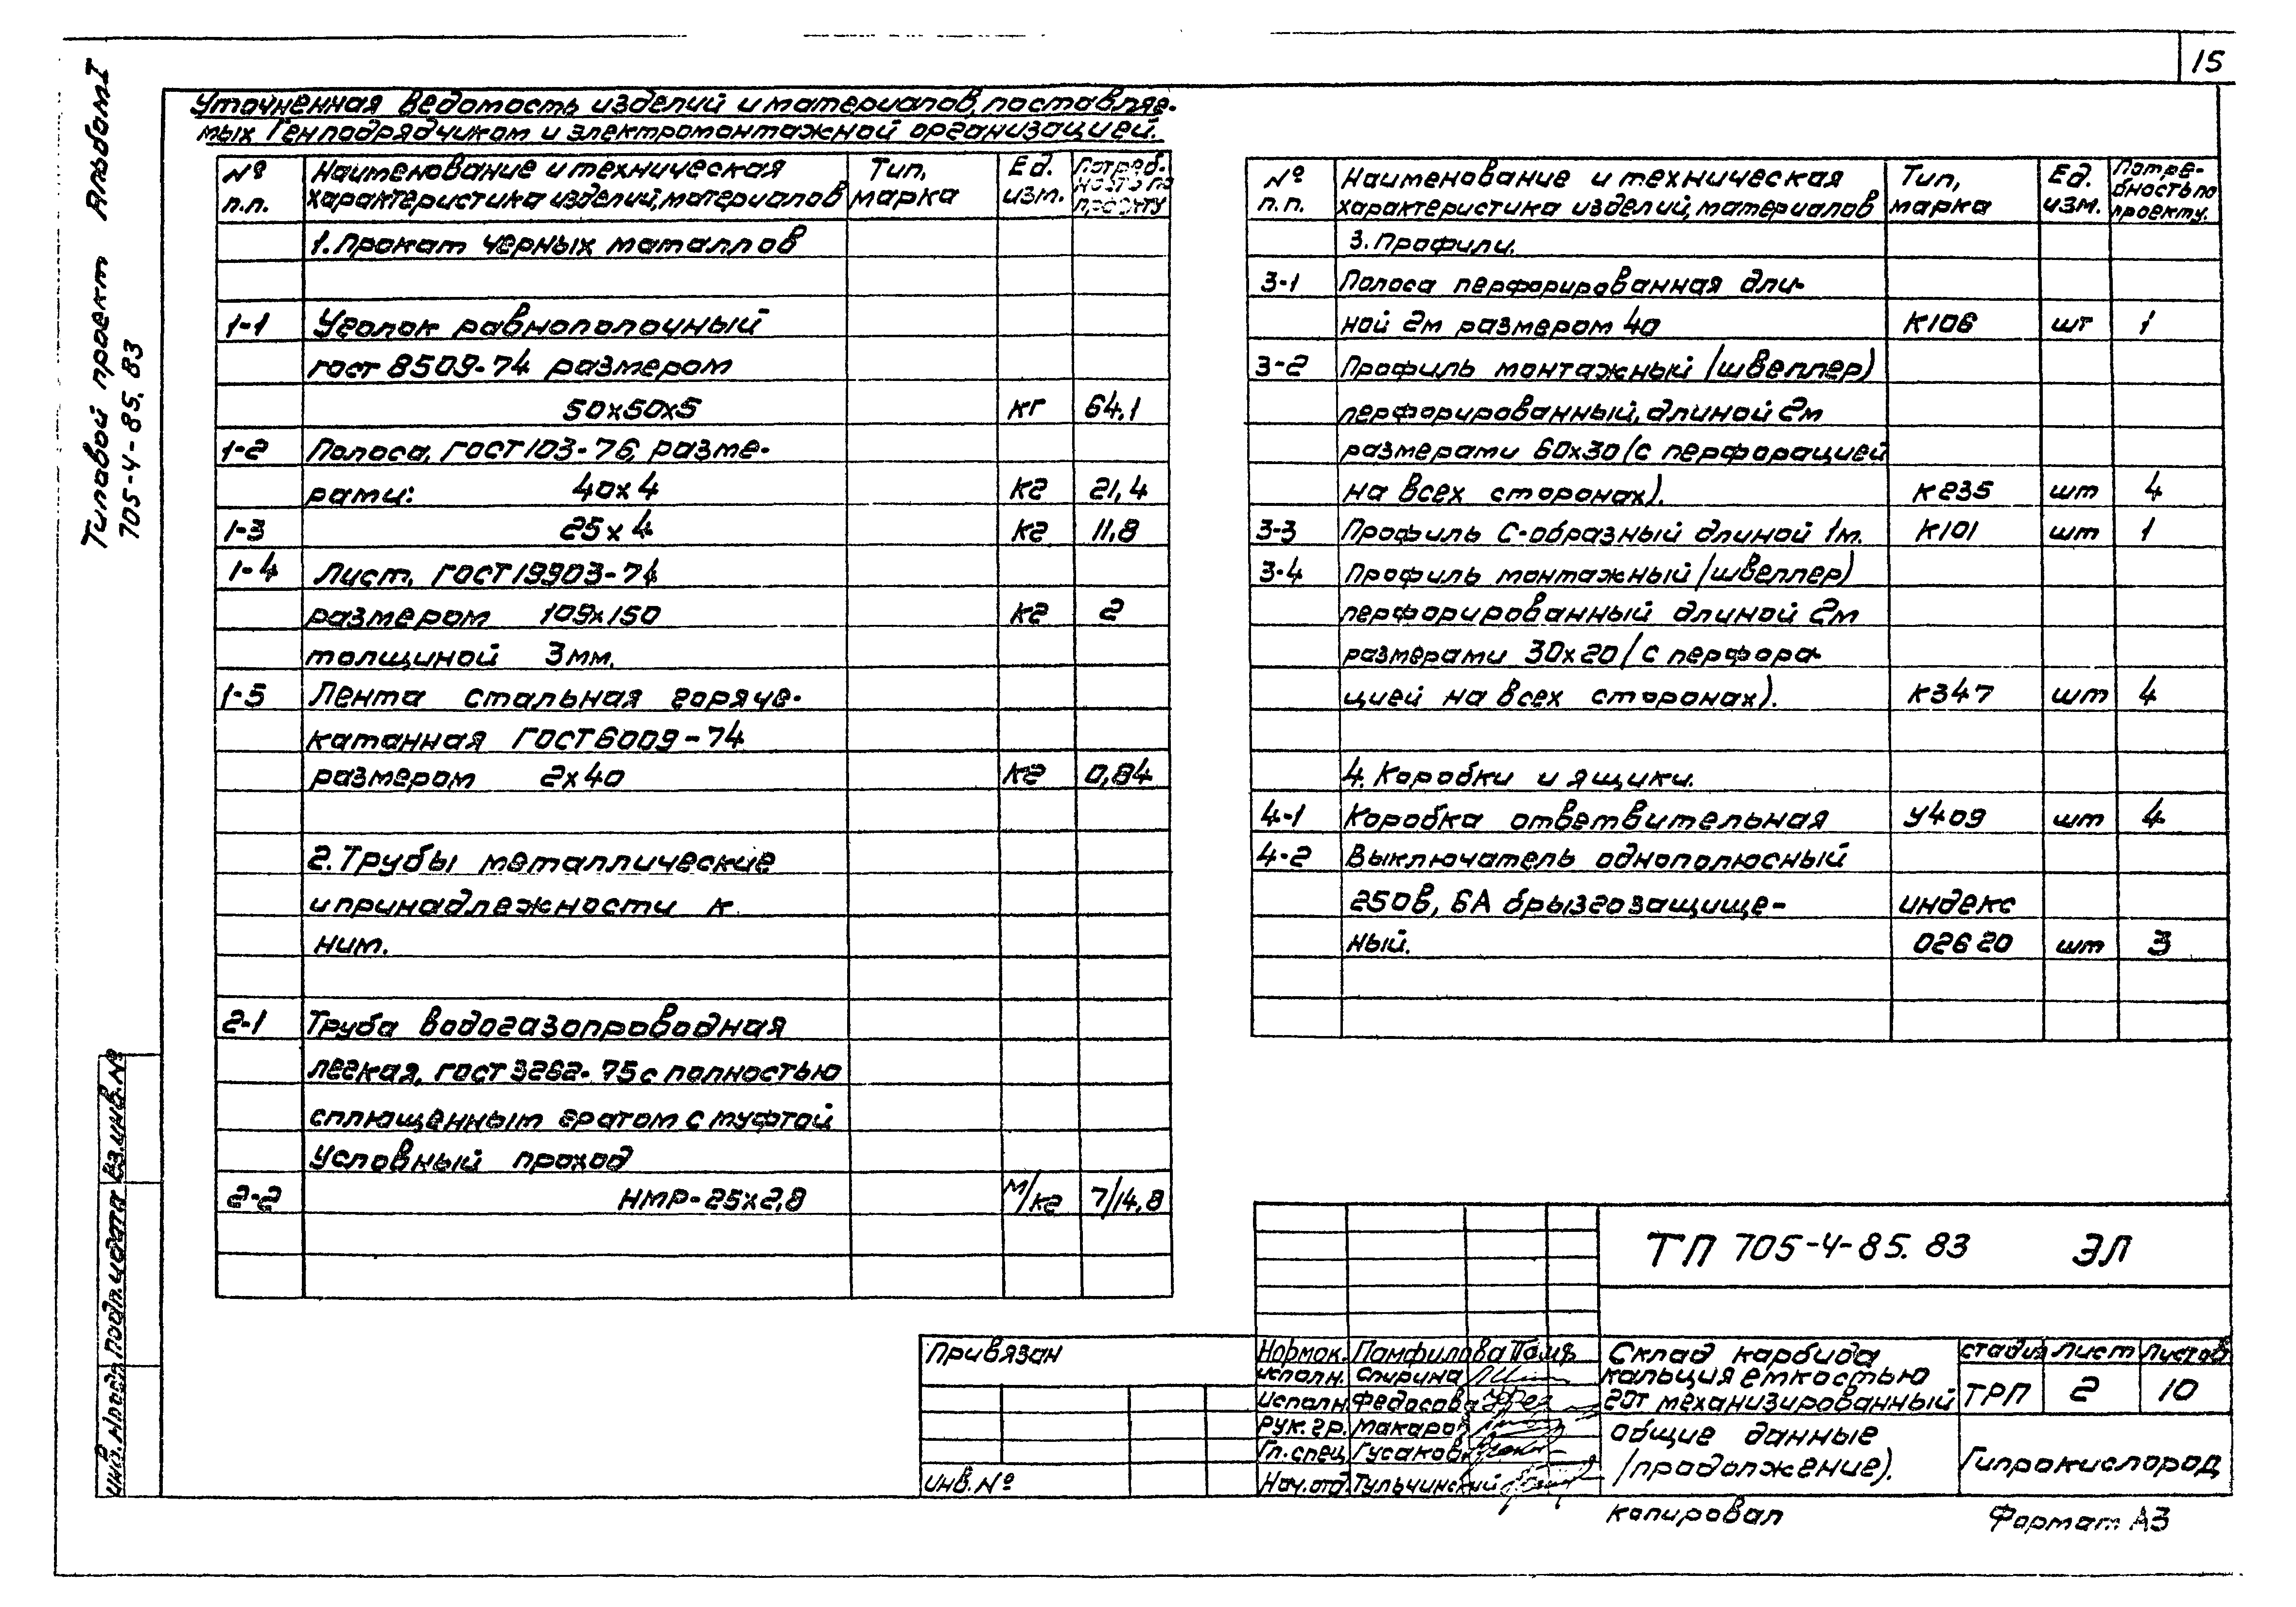 15
Типовой проект Альбом I
705-4-85.83
Уточненная ведомость изделий и материалов, поставляе-
мых Генподрядчиком и электромонтажной организацией.
№ п.п. Наименование и техническая характеристика изделий, материалов Тип, марка Ед. изм. Потреб-ность по проекту
1. Прокат черных маталлов
1-1 Уголок равнополочный
гост 8509-74 размером
50х50х5 кг 64,1
1-2 Полоса, ГОСТ 103-76, разме-
рами: 40х4 кг 21,4
1-3 25х4 кг 11,8
1-4 Лист, ГОСТ 19903-74
размером 109х150 кг 2
толщиной 3мм.
1-5 Лента стальная горяче-
катанная ГОСТ 6009-74
размером 2х40 кг 0,84
2. Трубы металлические
и принадлежности к
ним.
2-1 Труба водогазопроводная
легкая, гост 3262-75 с полностью
сплющенным гратом с муфтой
Условный проход
2-2 НМР-25х2,8 м/кг 7/14,8
№ п.п. Наименование и техническая характеристика изделий, материалов Тип, марка Ед. изм. Потре-бность по проекту.
3. Профили.
3-1 Полоса перфорированная дли-
ной 2м размером 40 К106 шт 1
3-2 Профиль монтажный /швеллер)
перфорированный, длиной 2м
размерами 60х30 /с перфорацией
на всех сторонах). К235 шт 4
3-3 Профиль С-образный длиной 1м. К101 шт 1
3-4 Профиль монтажный /швеллер)
перфорированный длиной 2м
размерами 30х20 /с перфора-
цией на всех сторонах). К347 шт 4
4. Коробки и ящики.
4-1 Коробка ответвительная У409 шт 4
4-2 Выключатель однополюсный
250в, 6А брызгозащище- индекс
ный. 02620 шт 3
ТП 705-4-85.83 ЭЛ
Привязан
Инв. №
Нормок. Памфилова
исполн. Спирина
Исполн. Федосова
Рук. гр. Макаров
Гл. спец. Гусаков
Нач. отд. Тульчинский
Склад карбида
кальция емкостью
20т механизированный
общие данные
/продолжение).
стадия лист листов
ТРП 2 10
Гипрокислород
копировал Формат А3
инв. № подл. Подп. и дата Вз. инв. №